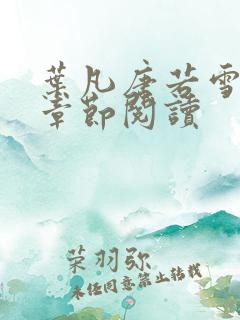 葉凡唐若雪
章節閱讀
荣羽弥
未经同意禁止转载